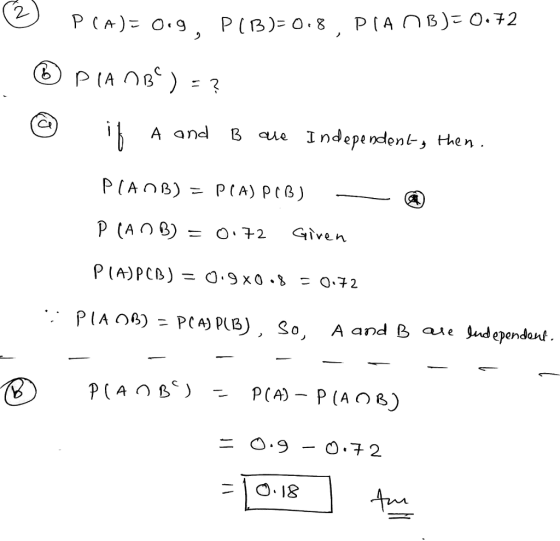 ② P(A)= 0.9, P(B)= 0.8, P(A∩B)= 0.72
ⓑ P(A∩Bᶜ) = ?
ⓐ if A and B are Independent, then.
P(A∩B) = P(A) P(B) —— ⓐ
P(A∩B) = 0.72 Given
P(A)P(B) = 0.9×0.8 = 0.72
∵ P(A∩B) = P(A)P(B), So, A and B are Independent.
ⓑ P(A∩Bᶜ) = P(A) - P(A∩B)
= 0.9 - 0.72
= 0.18 Ans